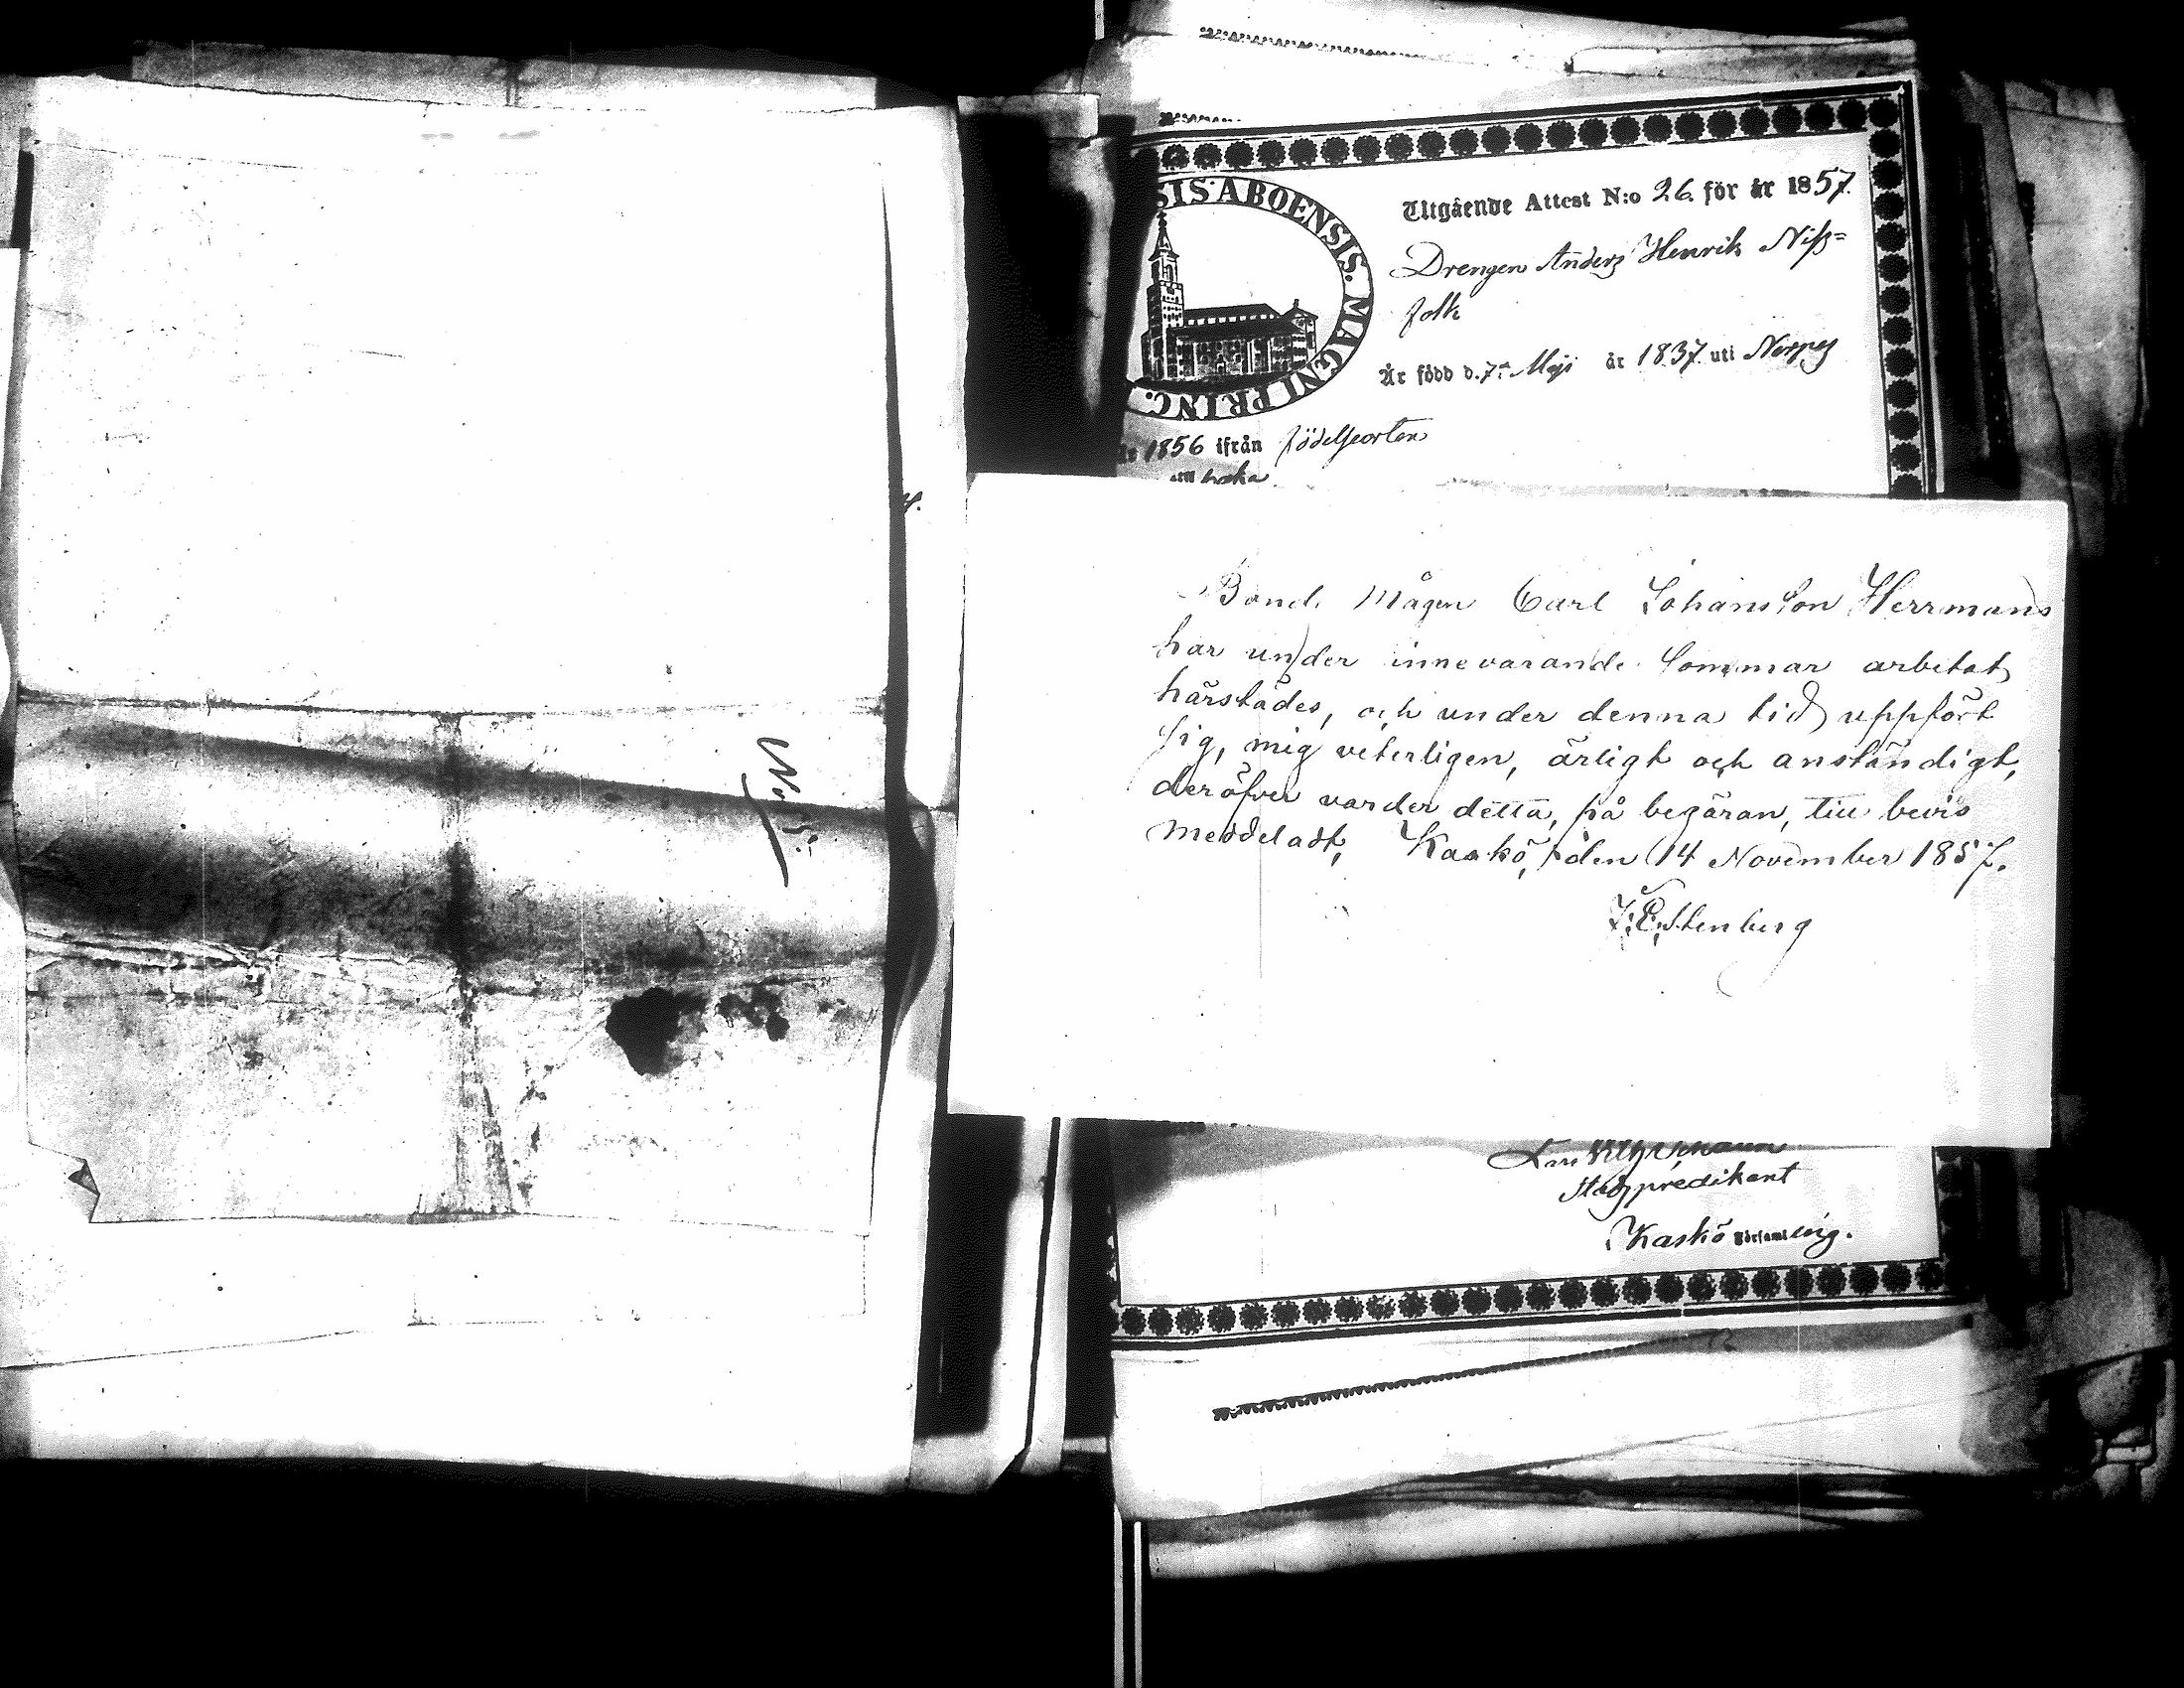 SIS·ABOENSIS. MAGNI PRINC.
Utgående Attest N:o 26. för år 1857.
Drengen Anders Henrik Niss=
folk
Är född d. 7de Maji år 1837 uti Nerpes
1856 ifrån födelseorten
Bond. Mågen Carl Johansson Herrmans
har under innevarande Sommar arbetat
härstädes, och under denna tid uppfört
sig, mig veterligen, ärligt och anständigt,
deröfver varder detta, på begäran, till bevis
meddeladt, Kaskö, den 14 November 1857.
J. E. Stenberg
Stadspredikant
Kaskö Församling.